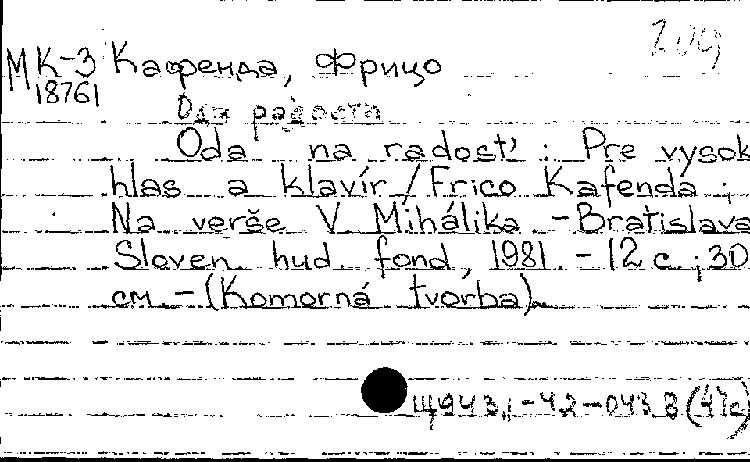 204
МК-3 Кафенда, Фрицо
18761
Ода радости
Oda na radosť : Pre vysok
hlas a klavír / Frico Kafenda ;
Na verše V. Mihálika. - Bratislava
Sloven. hud. fond, 1981. - 12 с. ; 30
см. - (Komorná tvorba).
Щ943.1-42-043.8(4Че)